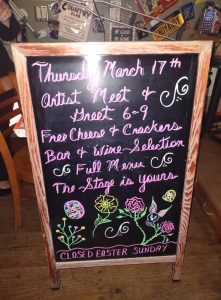 Thursday March 17th
Artist Meet &
Greet 6-9
Free Cheese & Crackers
Bar & Wine Selection
Full Menu
The Stage is Yours
CLOSED EASTER SUNDAY